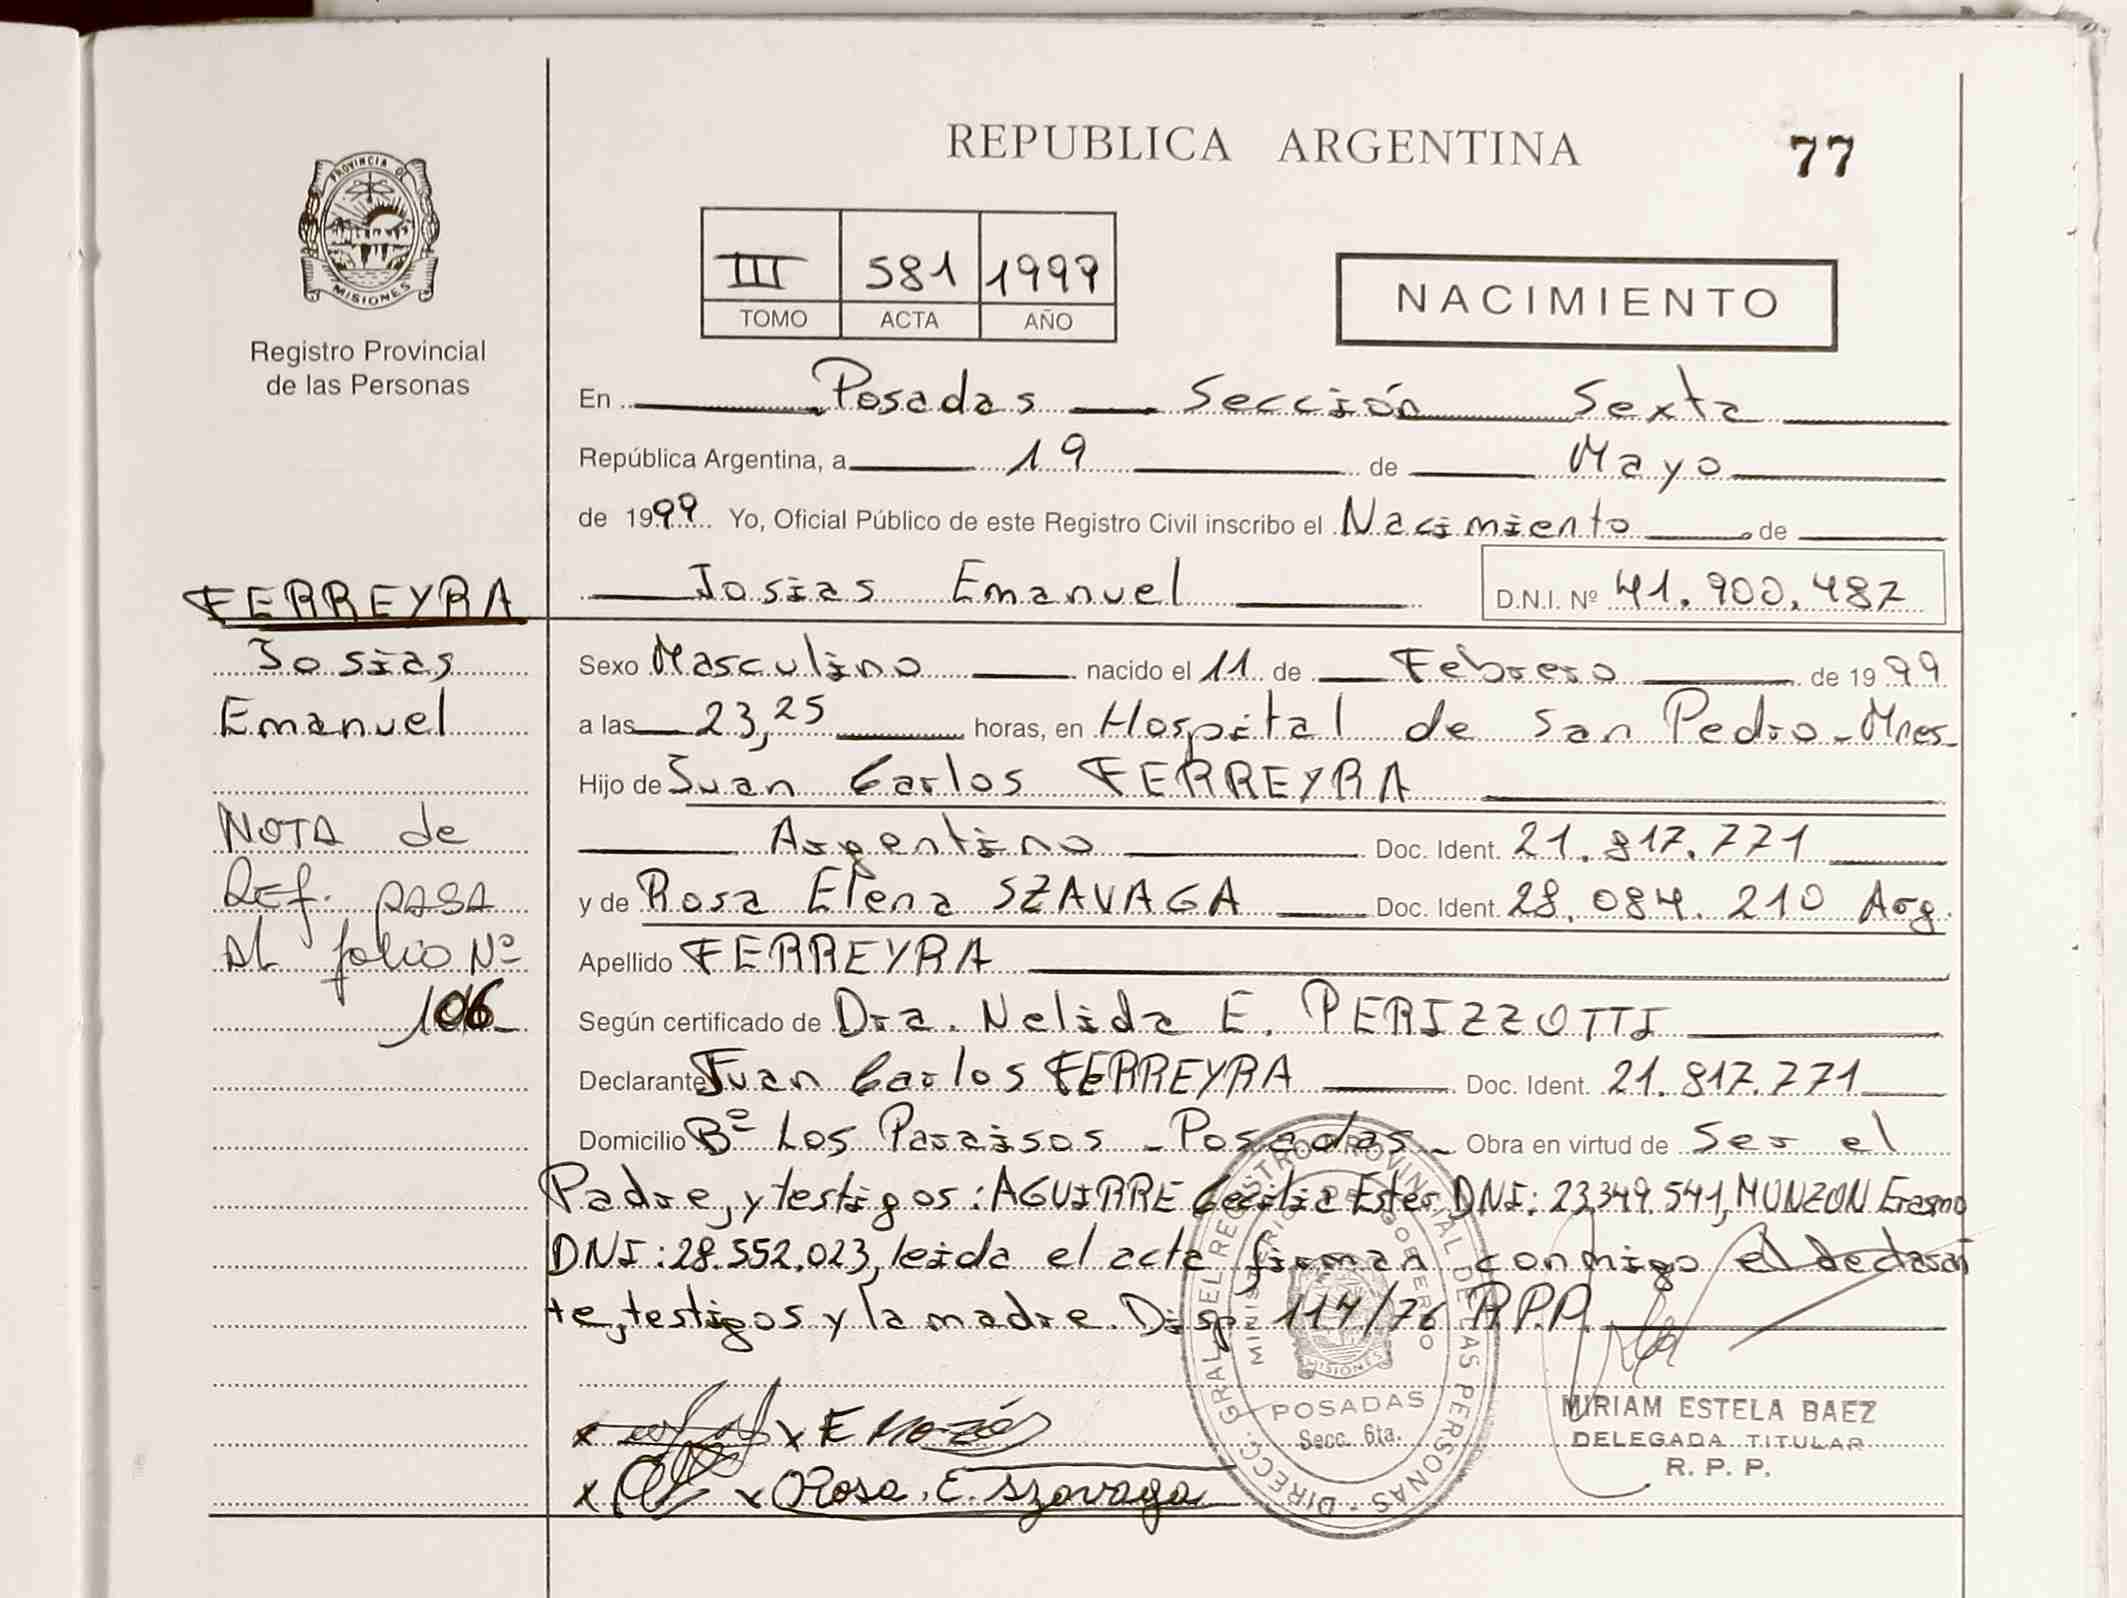 REPUBLICA ARGENTINA
77
PROVINCIA DE
MISIONES
Registro Provincial
de las Personas
III 581 1999
TOMO ACTA AÑO
NACIMIENTO
En Posadas Sección Sexta
República Argentina, a 19 de Mayo
de 1999 Yo, Oficial Público de este Registro Civil inscribo el Nacimiento, de
Josias Emanuel D.N.I. Nº 41.900.487
Sexo Masculino nacido el 11 de Febrero de 1999
a las 23,25 horas, en Hospital de San Pedro-Mnes-
Hijo de Juan Carlos FERREYRA
Argentino Doc. Ident. 21.817.771
y de Rosa Elena SZAVAGA Doc. Ident. 28.084.210 Arg.
Apellido FERREYRA
Según certificado de Dra. Nelida E. PERIZZOTTI
Declarante Juan Carlos FERREYRA Doc. Ident. 21.817.771
Domicilio Bº Los Paraisos - Posadas - Obra en virtud de Ser el
Padre, y testigos: AGUIRRE Cecilia Ester DNI: 23.349.541, MUNZON Erasmo
DNI: 28.552.023, leida el acta firman conmigo el declaran
te, testigos y la madre. Disp. 114/76 R.P.P.
FERREYRA
Josias
Emanuel
NOTA de
Ref. PASA
Al folio Nº
106-
x x E
x x Rosa. E. Szavaga
DIRECC. GRAL DEL REGISTRO PROVINCIAL DE LAS PERSONAS
MINISTERIO DE GOBIERNO
MISIONES
POSADAS
Secc. 6ta.
MIRIAM ESTELA BAEZ
DELEGADA TITULAR
R. P. P.